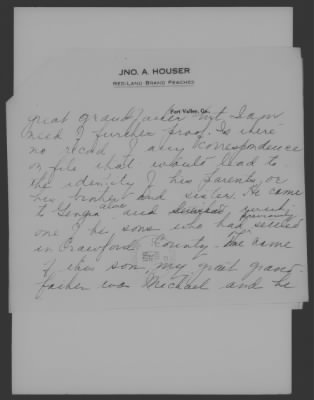 JNO. A. HOUSER
RED-LAND BRAND PEACHES
Fort Valley, Ga.,
great grandfather but I am
need of further proof. Is there
no record of any correspondence
on file that would lead to
the identity of his parents, or
his brother and sister. He came
to Georgia alone and
one of his sons who had previously settled
in Crawford County - The name
of this son, my great grand-
father was Michael and he